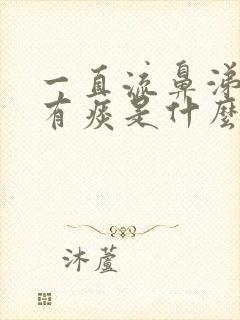 一直流鼻涕
有痰是什麼
沐蘆